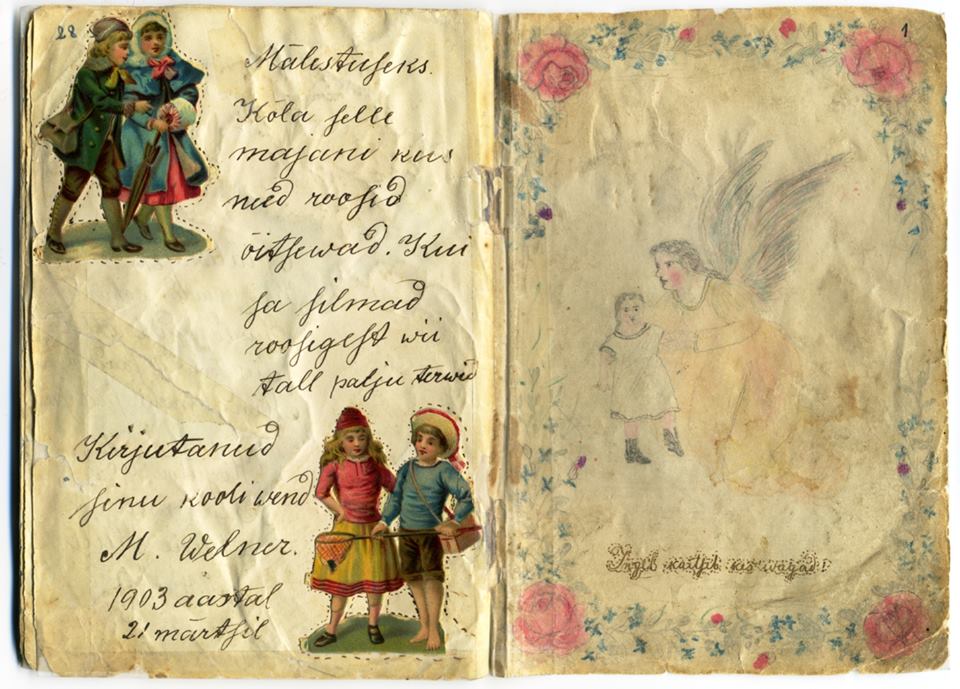 28
Mälestuseks.
Kõla selle
majani kus
need roosid
õitsewad. Kui
sa silmad
roosigest wii
tall palju terwid
Kirjutanud
sinu kooli wend
M. Welner.
1903 aastal
21 märtsil
1
kaitsib kes wagad!